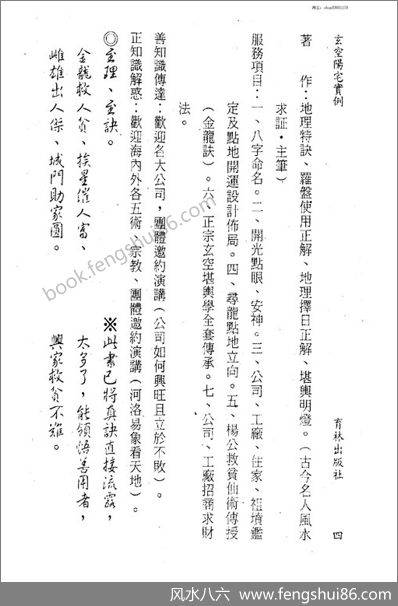 玄空陽宅實例
育林出版社 四
著 作:地理特訣、羅盤使用正解、地理擇日正解、堪輿明燈。(古今名人風水
求証·主筆)
服務項目:一、八字命名。二、開光點眼、安神。三、公司、工廠、住家、祖墳鑑
定及點地開運設計佈局。四、尋龍點地立向。五、楊公救貧仙術傳授
(金龍訣)。六、正宗玄空堪輿學全套傳承。七、公司、工廠招商求財
法。
善知識傳達:歡迎各大公司,團體邀約演講(公司如何興旺且立於不敗)。
正知識解惑:歡迎海內外各五術、宗教、團體邀約演講(河洛易象看天地)。
◎至理、至訣。
金龍救人貧、挨星催人富、
雌雄出人傑、城門助家圓。
※此書已將真訣直接流露,
太多了,能領悟善用者,
興家救貧不難。
book.fengshui86.com
风水八六 www.fengshui86.com